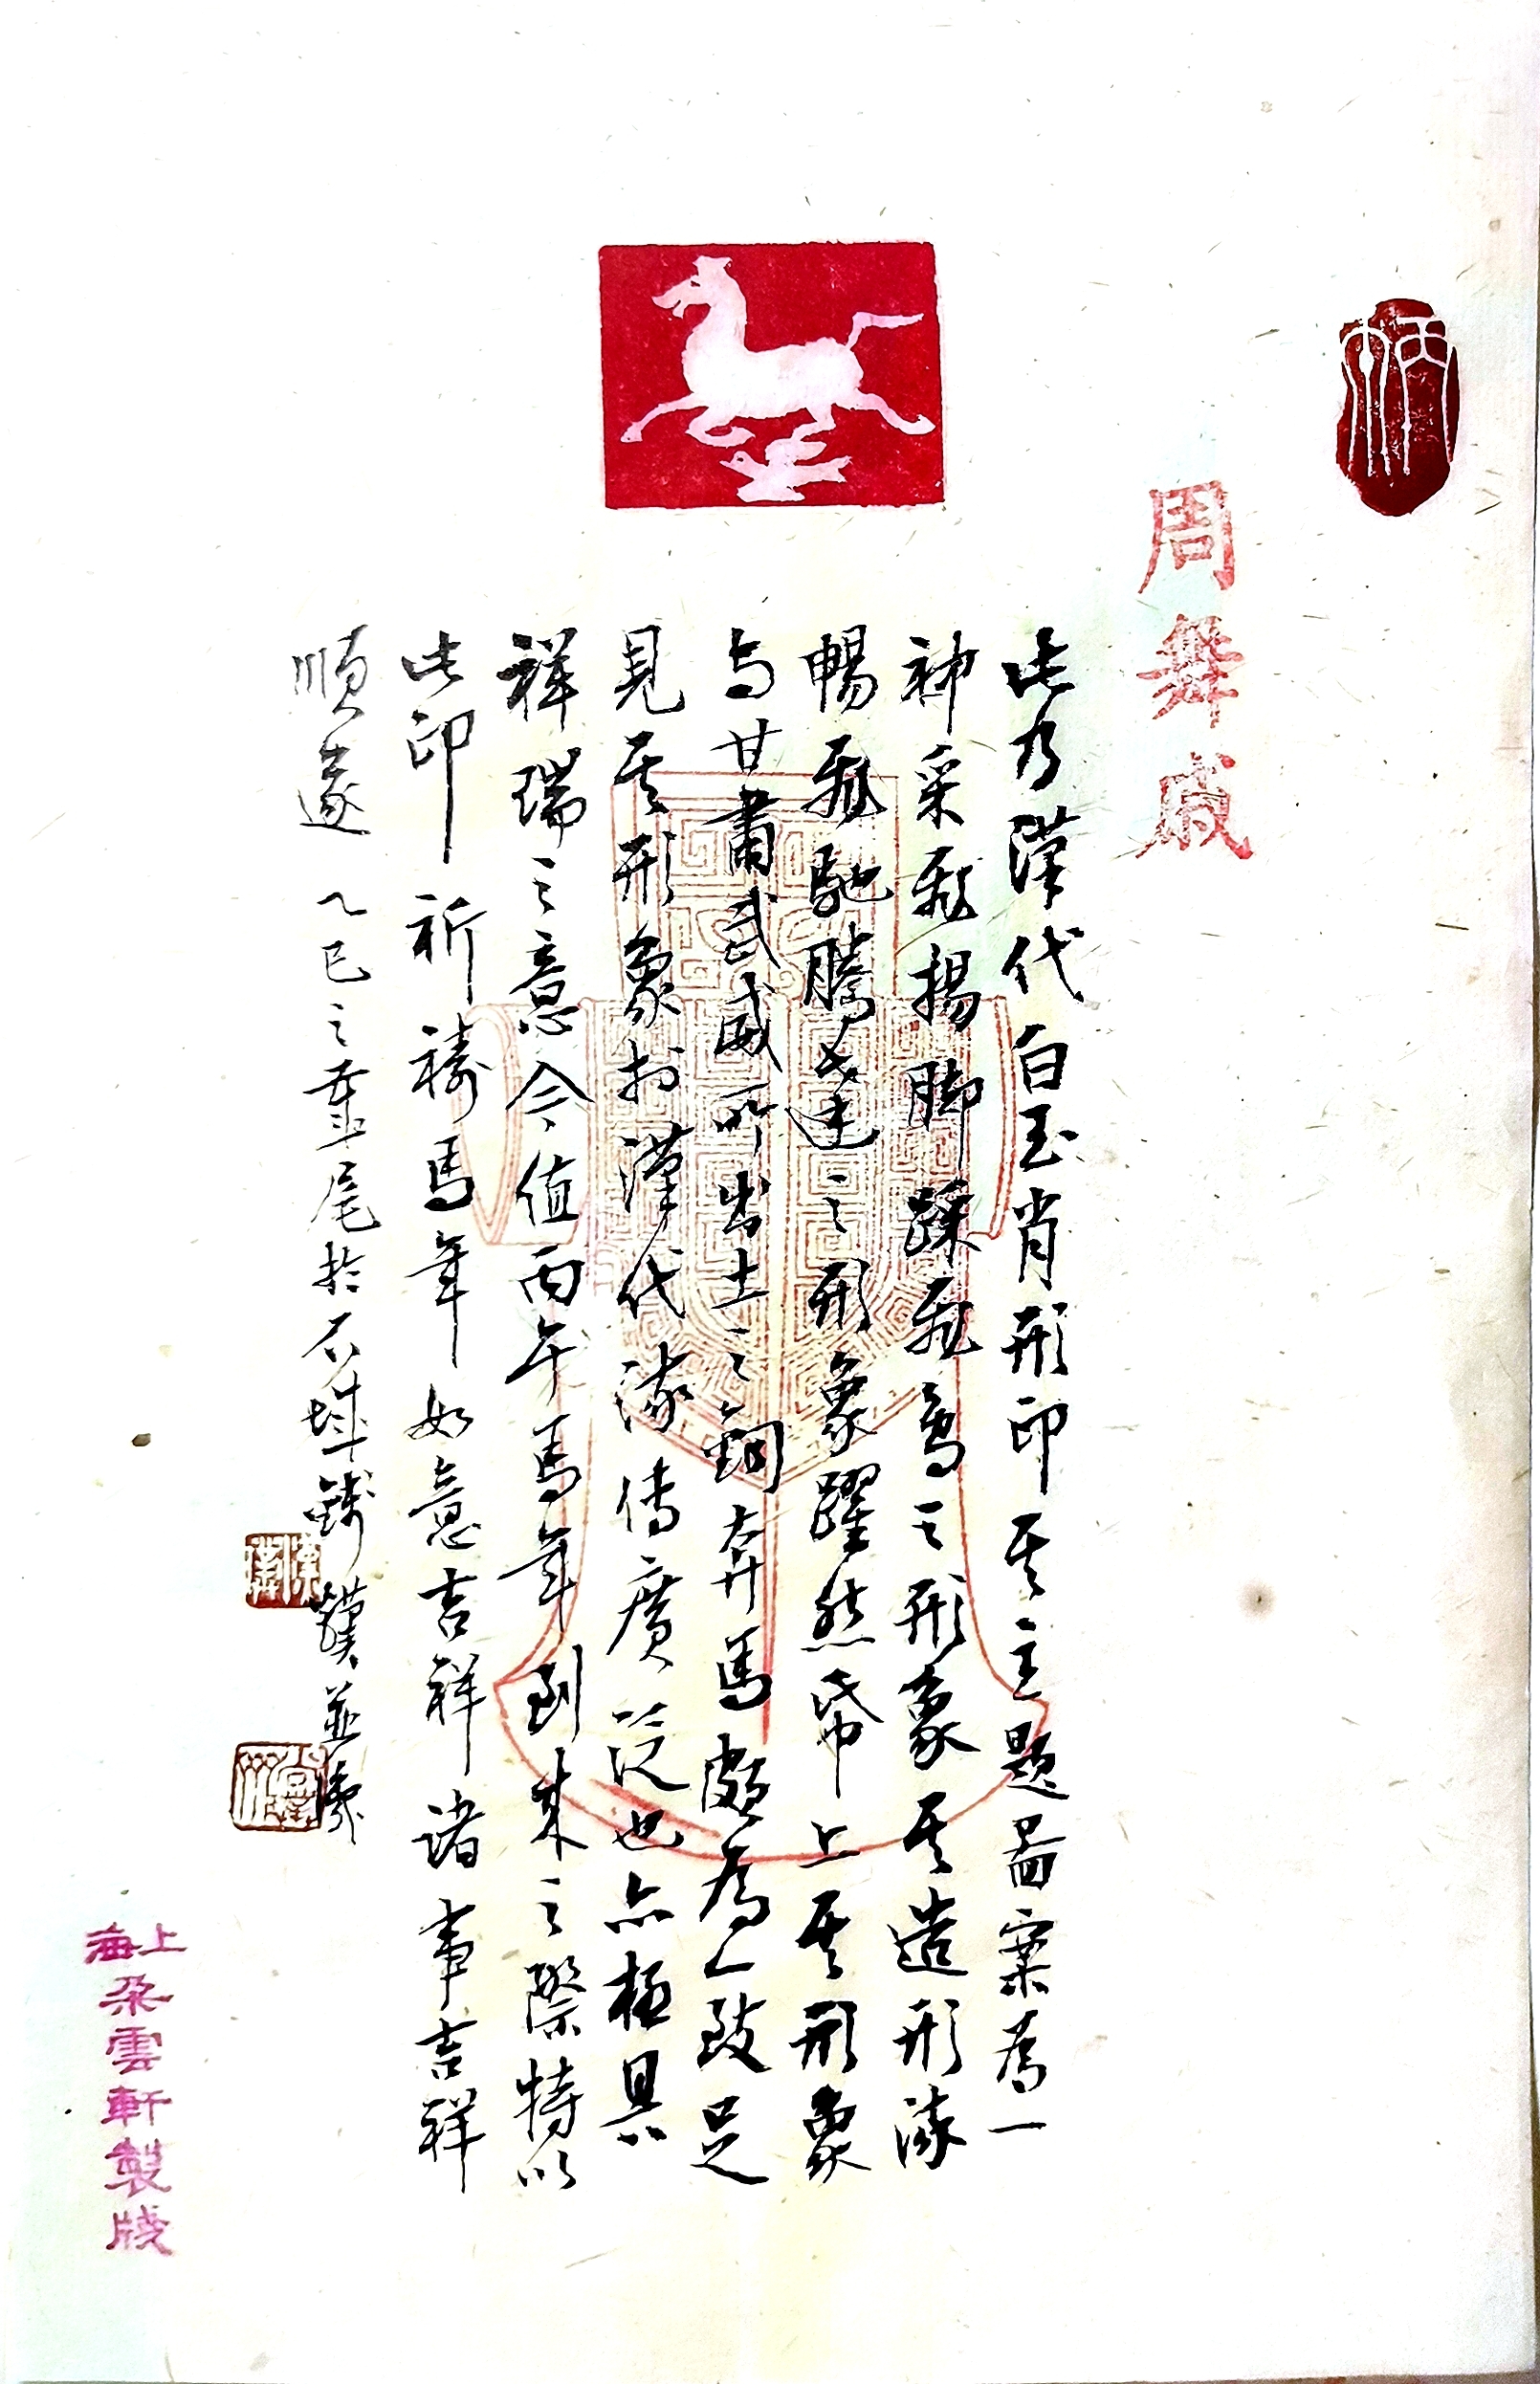 周舞戚
此乃漢代白玉肖形印其主題圖案爲一
神采飛揚脚踩飛鳥之形象其造形流
暢飛馳騰達之形象躍然帋上其形象
与甘肅武威所出土之銅奔馬頗爲一致足
見其形象於漢代流傳廣泛也亦極具
祥瑞之意今值丙午馬年到来之際特以
此印祈禱馬年如意吉祥諸事吉祥
順遂 乙巳之年尾於石城 漢並
上海
朵雲軒製牋